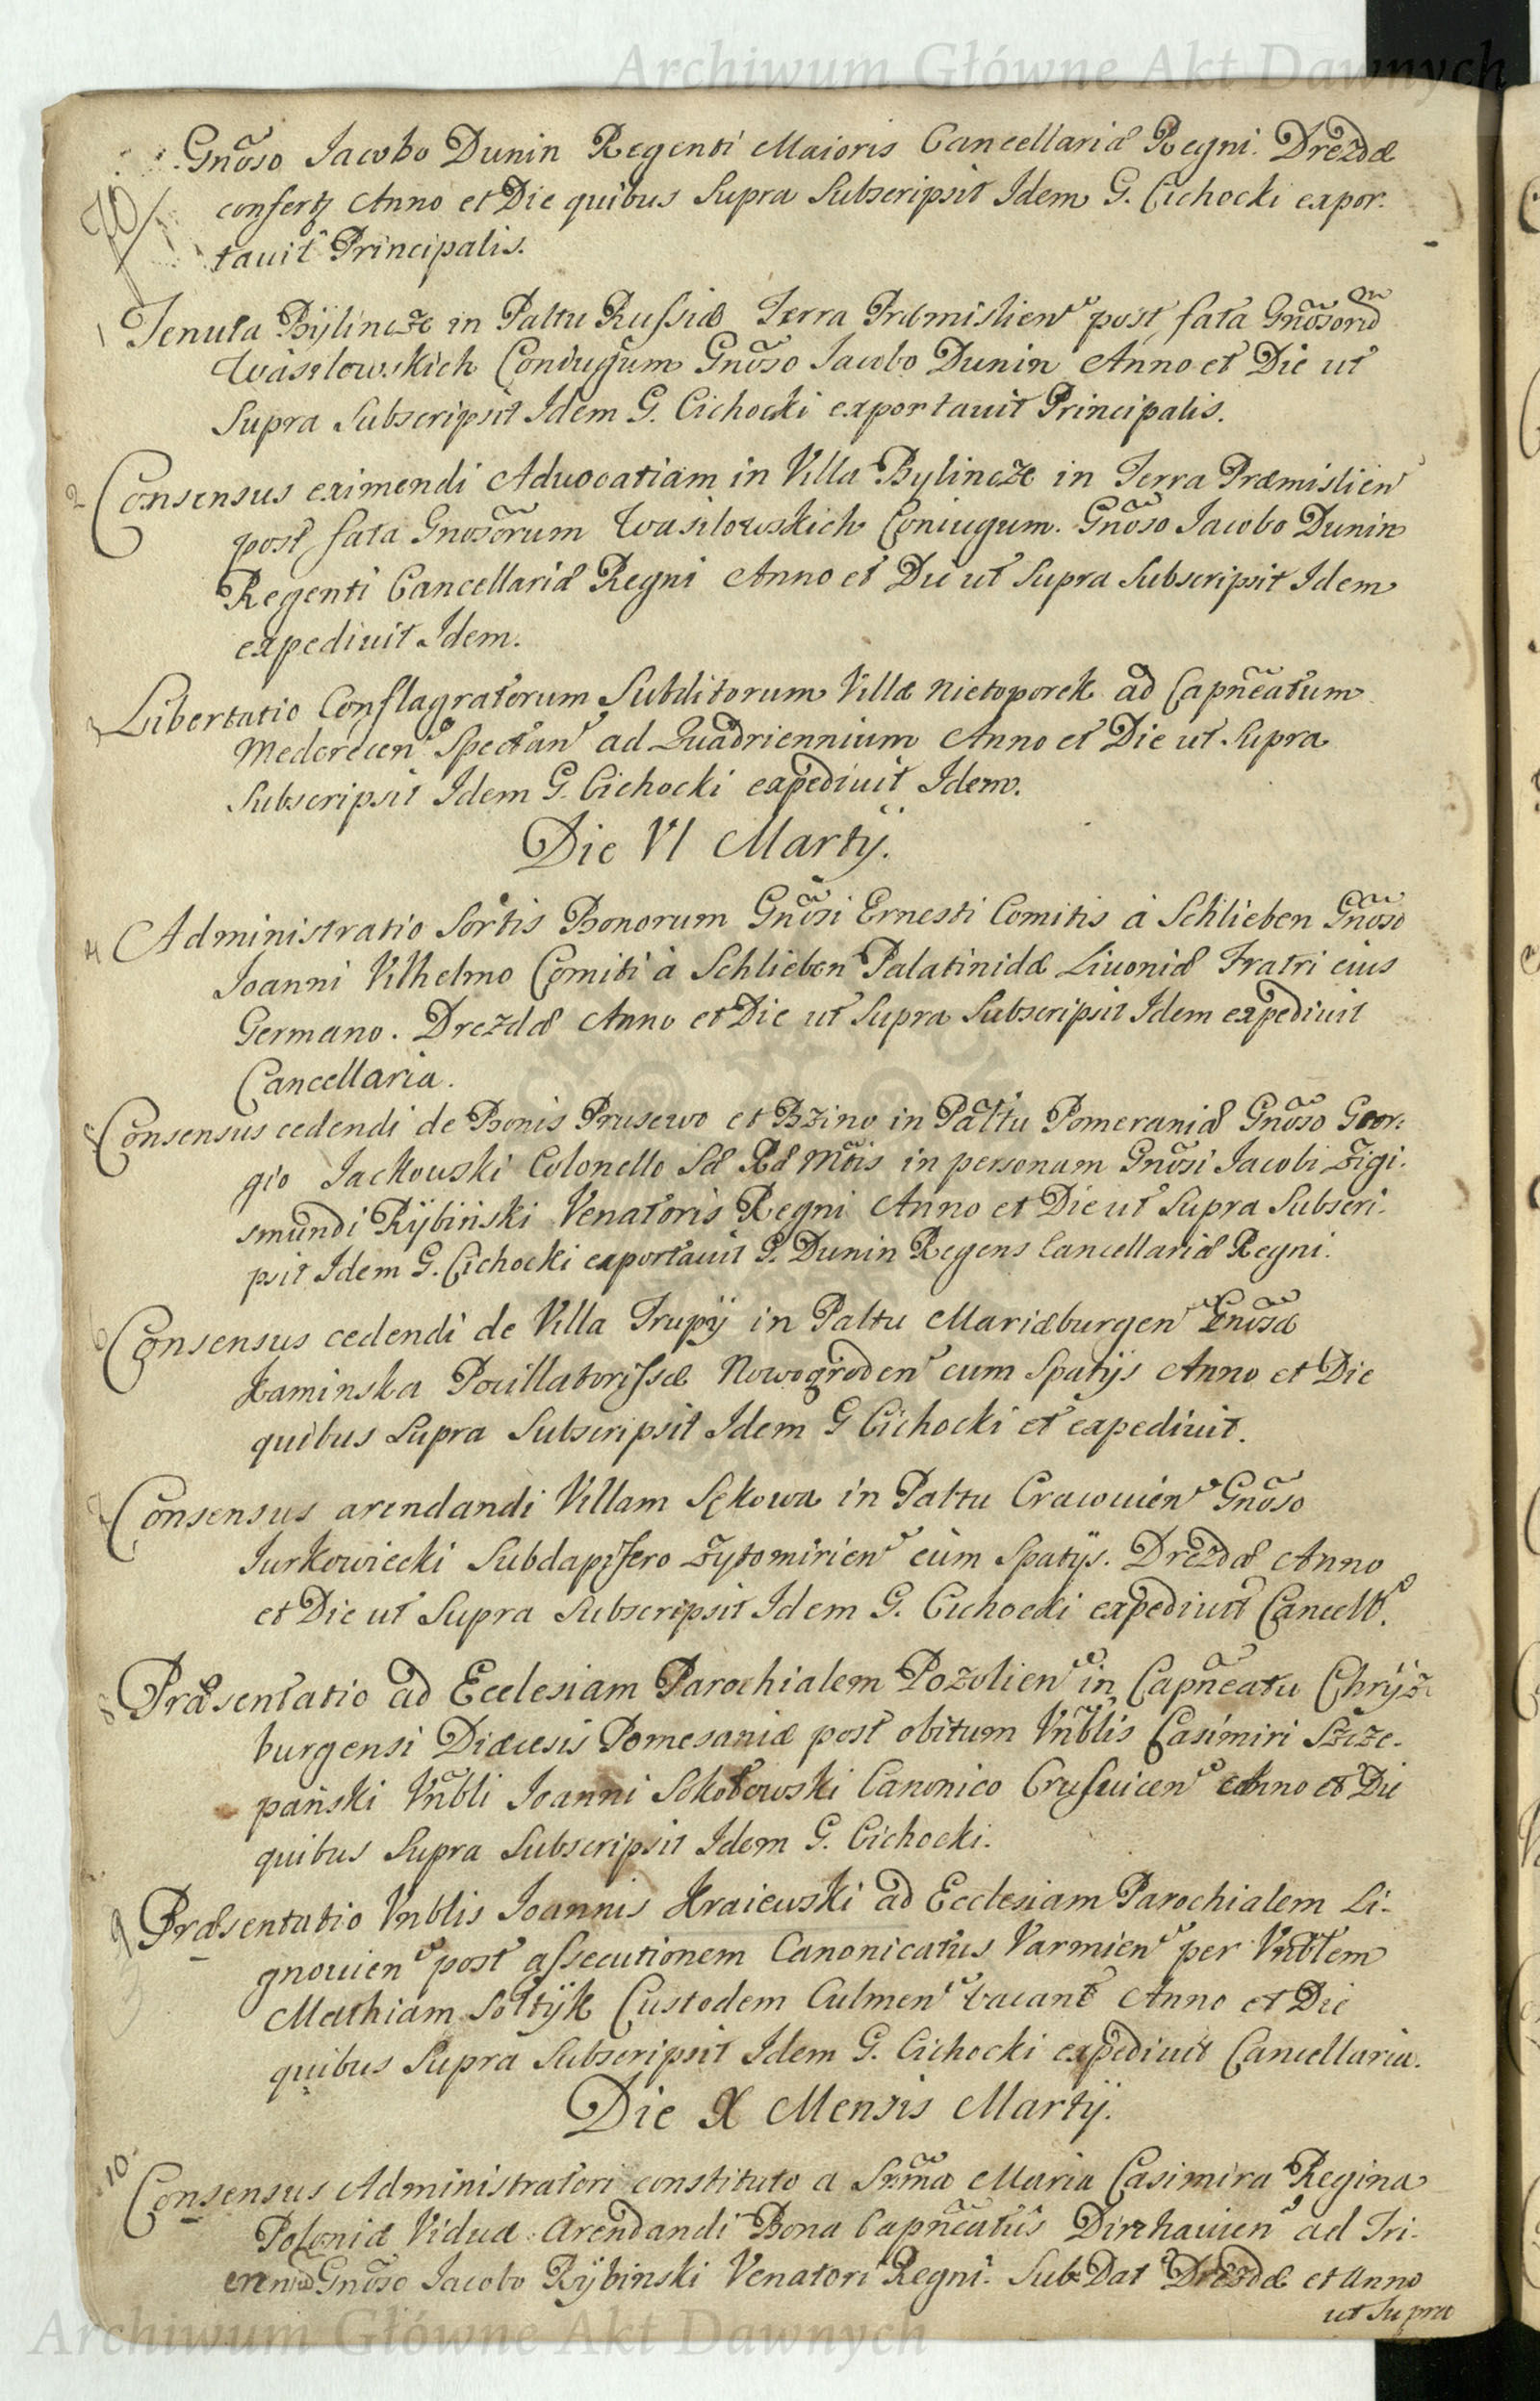 Archiwum Główne Akt Dawnych
Gnõso Iacobo Dunin Regenti Maioris Cancellariæ Regni. Drezdæ
confertz Anno et Die quibus Supra Subscripsit Idem G. Cichocki expor-
tavit Principalis.
70
1 Tenuta Byĺincze in Palttu Russiæ Terra Præmislien post fata Gnõsorũm
Wasilowskich Coniugum Gnõso Iacobo Dunin Anno et Die ut
Supra Subscripsit Idem G. Cichocki exportauit Principalis.
2 Consensus eximendi Aduocatiam in Villa Bylincze in Terra Præmislien
post fata Gnosõrum Wasilowskich Coniugum. Gnõso Iacobo Dunin
Regenti Cancellariæ Regni Anno et Die ut Supra Subscripsit Idem
expediuit Idem.
3 Libertatio Conflagratorum Subditorum Villæ Nietoporek ad Capñeatum
Mederecen Spectan ad Quadriennium Anno et Die ut Supra
Subscripsit Idem G. Cichocki expediuit Idem.
Die VI Martÿ.
4 Administratio Sortis Bonorum Gnõsi Ernesti Comitis à Schlieben Gnõso
Ioanni Vilhelmo Comiti à Schlieben Palatinidæ Liuoniæ Fratri eius
Germano. Drezdæ Anno et Die ut Supra Subscripsit Idem expediuit
Cancellaria.
5 Consensus cedendi de Bonis Prusewo et Bzino in Palttu Pomeraniæ Gnõso Geor-
gio Jackowski Colonello Sæ Ræ Mttis in personam Gnõsi Iacobi Zigi-
smundi Rÿbiński Venatoris Regni Anno et Die ut Supra Subscri-
psit Idem G. Cichocki exportauit G. Dunin Regens Cancellariæ Regni.
6 Consensus cedendi de Villa Trupÿ in Palttu Mariæburgen Gnõsæ
Kaminska Pocillatorissæ Nowogroden cum Spatÿs Anno et Die
quibus Supra Subscripsit Idem G Cichocki et expediuit.
7 Consensus arendandi Villam Sękowa in Palttu Cracouien Gnõso
Jurkowiecki Subdapifero Zytomirien cum Spatÿs. Drezdæ Anno
et Die ut Supra Subscripsit Idem G. Cichocki expediuit Cancell.
8 Præsentatio ad Ecclesiam Parochialem Pozolien in Capñeatu Chrÿz-
burgensi Diæcesis Pomesaniæ post obitum Vñblis Casimiri Szcze-
pański Vñbli Ioanni Sokołowski Canonico Crusuicen Anno et Die
quibus Supra Subscripsit Idem G. Cichocki.
9 Præsentatio Vnblis Ioannis Kraiewski ad Ecclesiam Parochialem Li-
gnouien post assecutionem Canonicatus Varmien per Vnblem
Mathiam Sołtÿk Custodem Culmen vacant Anno et Die
quibus Supra Subscripsit Idem G. Cichocki expediuit Cancellaria.
Die X Mensis Martÿ.
10. Consensus Administratori constituto a Srma Maria Casimira Regina
Poloniæ Vidua Arendandi Bona Capñeatus Dirrhauien ad Tri-
ennium Gnõso Iacobo Rÿbinski Venatori Regni. Sub Dat Drezdæ et Anno
ut Supra
Archiwum Główne Akt Dawnych